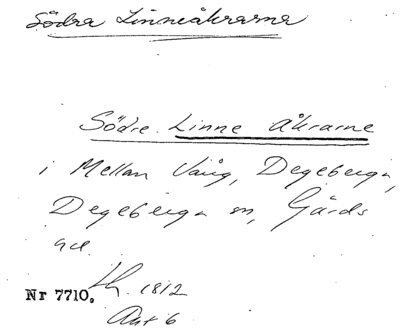 Södra Linneåkrarna
Södre Linne Åkrarne
i Mellan Vång, Degeberga,
Degeberga sn, Gärds
hd.
Nr 7710. Lh. 1812
Akt 6